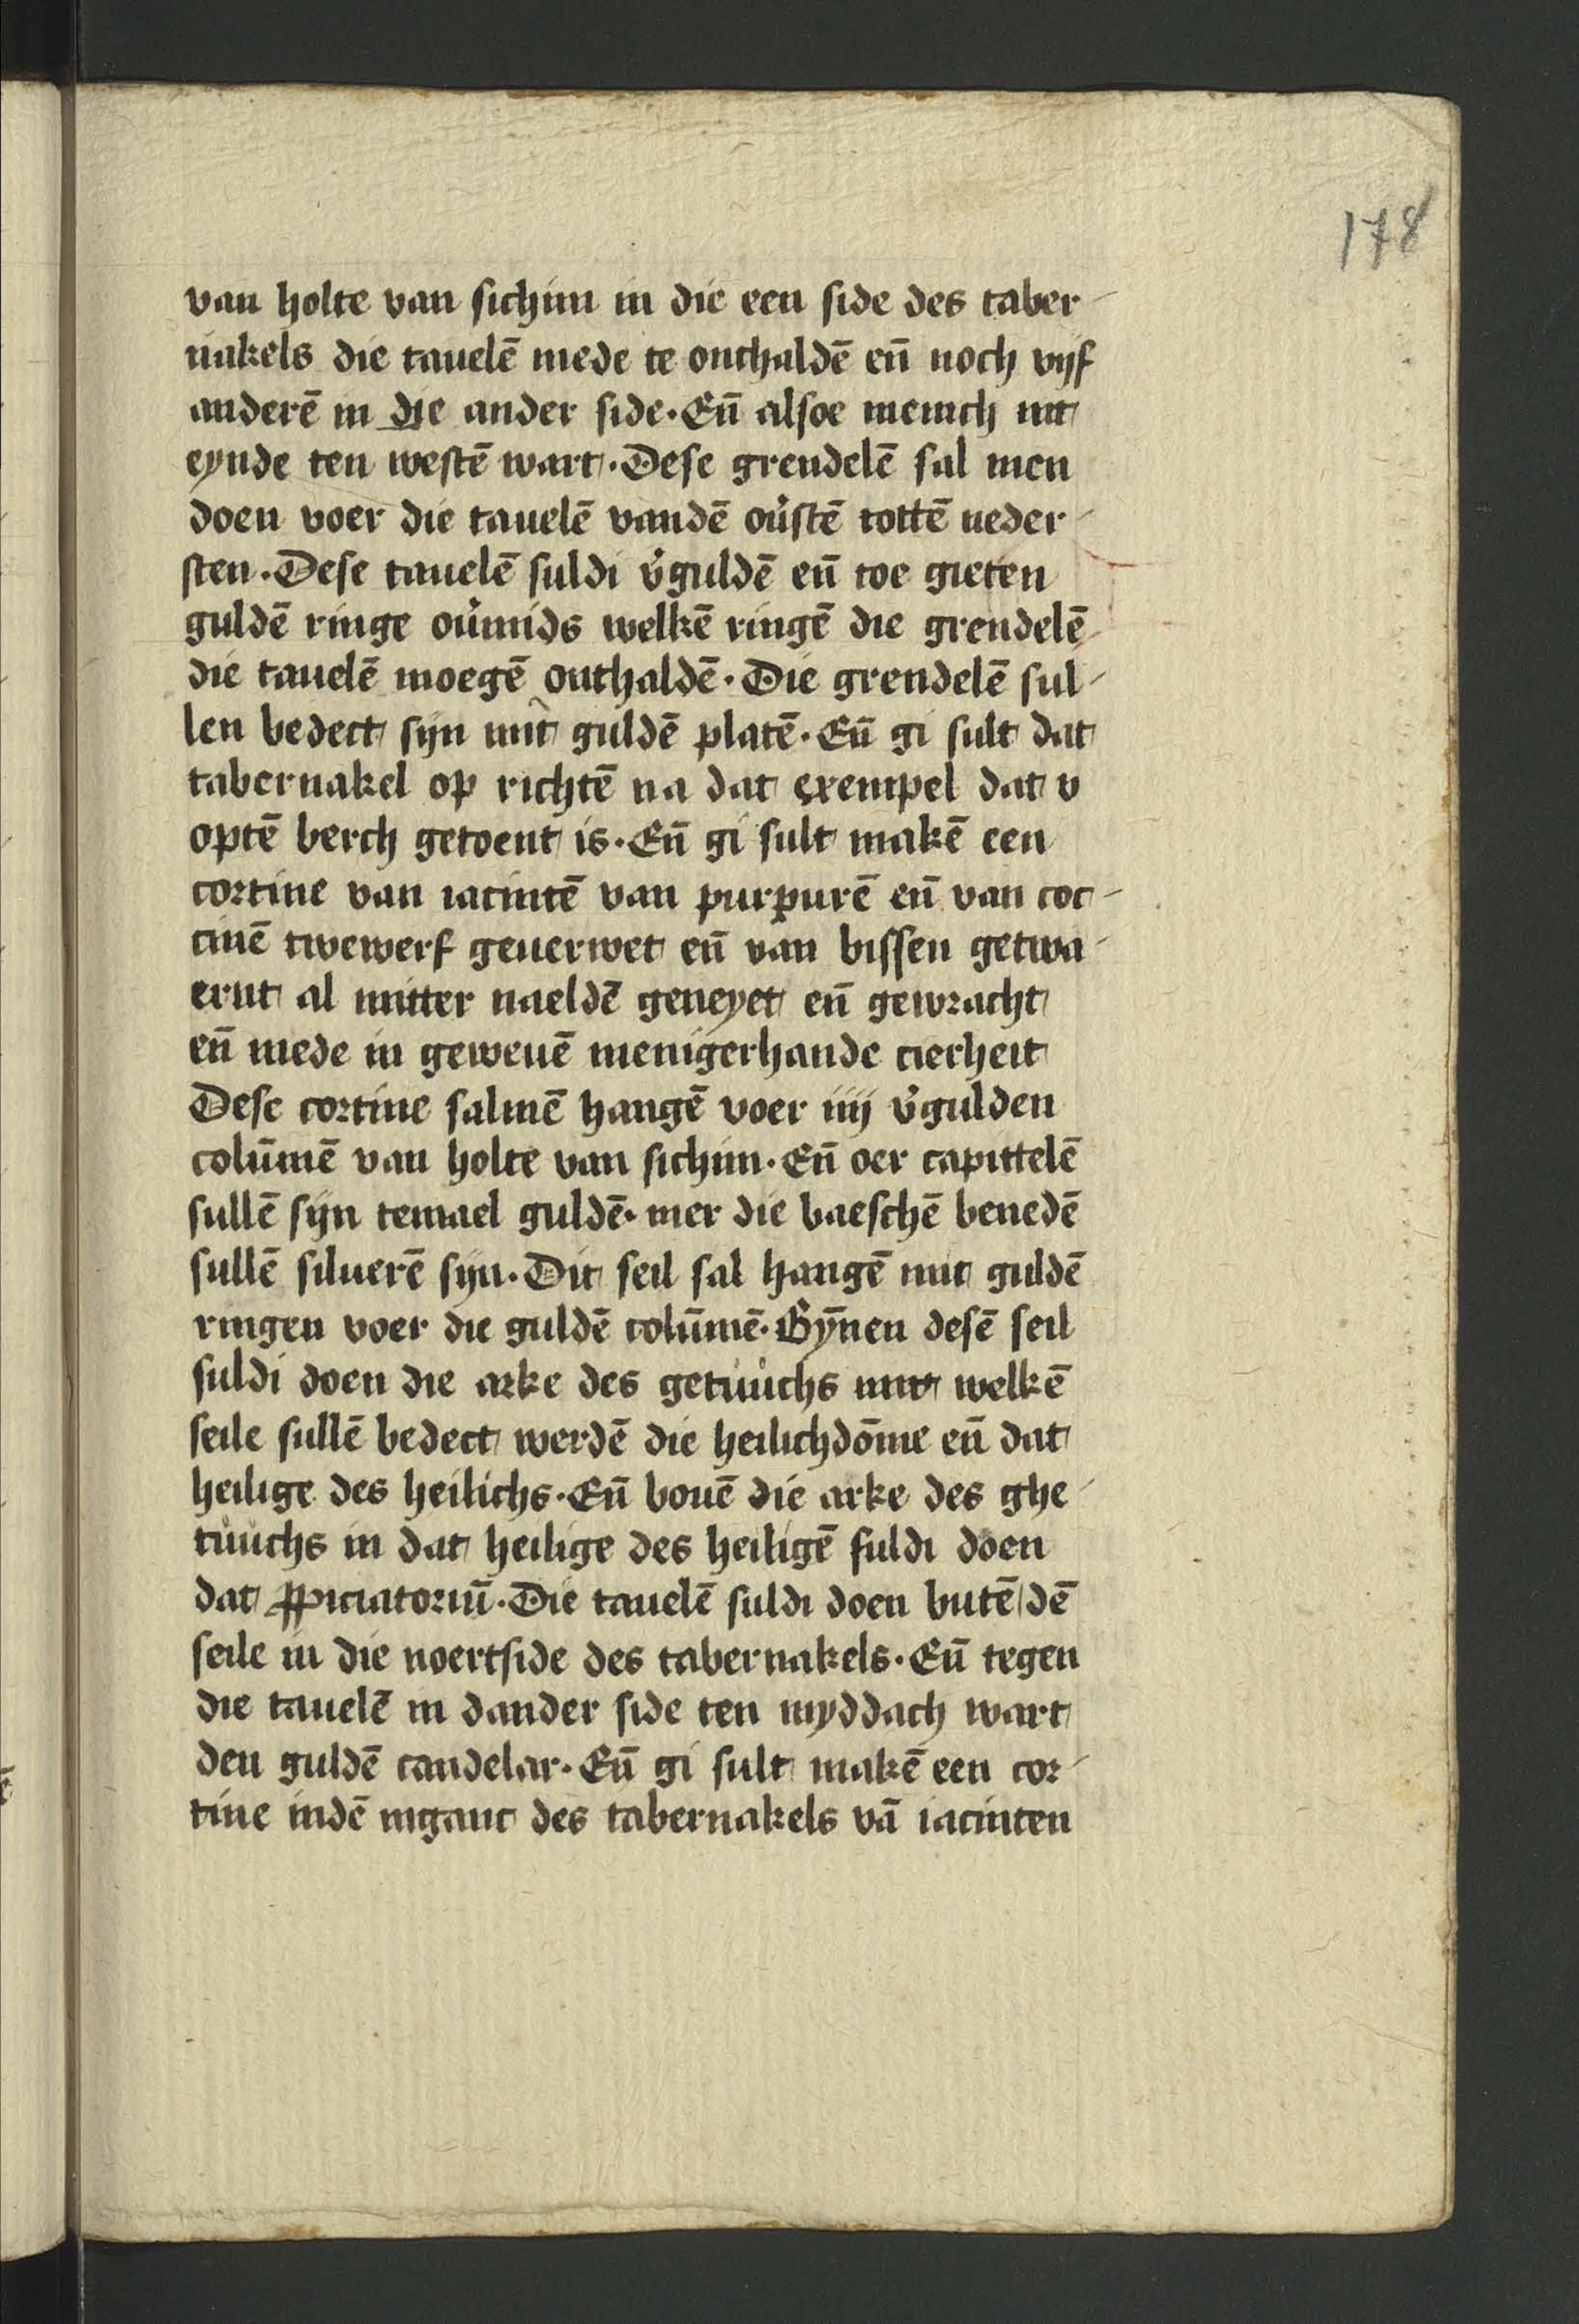 178
van holte van sichim in die een side des taber-
nakels die tauelē mede te onthaldē en̄ noch vijf
anderē in die ander side. En̄ alsoe menich int
eynde ten westē wart. Dese grendelē sal men
doen voer die tauelē vandē ou᷑stē tottē neder-
sten. Dese tauelē suldi v᷑guldē en̄ toe gieten
guldē ringe ou᷑mids welkē ringē die grendelē
die tauelē moegē onthaldē. Die grendelē sul-
len bedect sijn mit guldē platē. En̄ gi sult dat
tabernakel op richtē na dat exempel dat v
optē berch getoent is. En̄ gi sult makē een
cortine van iacintē van purpurē en̄ van coc-
cinē twewerf geuerwet en̄ van bissen getwa-
ernt al mitter naeldē geneyet en̄ gewracht
en̄ mede in geweuē menigerhande cierheit
Dese cortine salmē hangē voer iiij v᷑gulden
colūmē van holte van sichim. En̄ oer capittelē
sullē sijn temael guldē. mer die baeschē benedē
sullē siluerē sijn. Dit seil sal hangē mit guldē
ringen voer die guldē colūmē. Bȳnen desē seil
suldi doen die arke des getuuchs mit welkē
seile sullē bedect werdē die heilichdōme en̄ dat
heilige des heilichs. En̄ bouē die arke des ghe-
tuuchs in dat heilige des heiligē suldi doen
dat ꝓpiciatoriū. Die tauelē suldi doen butē dē
seile in die noertside des tabernakels. En̄ tegen
die tauelē in dander side ten myddach wart
den guldē candelar. En̄ gi sult makē een cor-
tine indē inganc des tabernakels vā iacinten